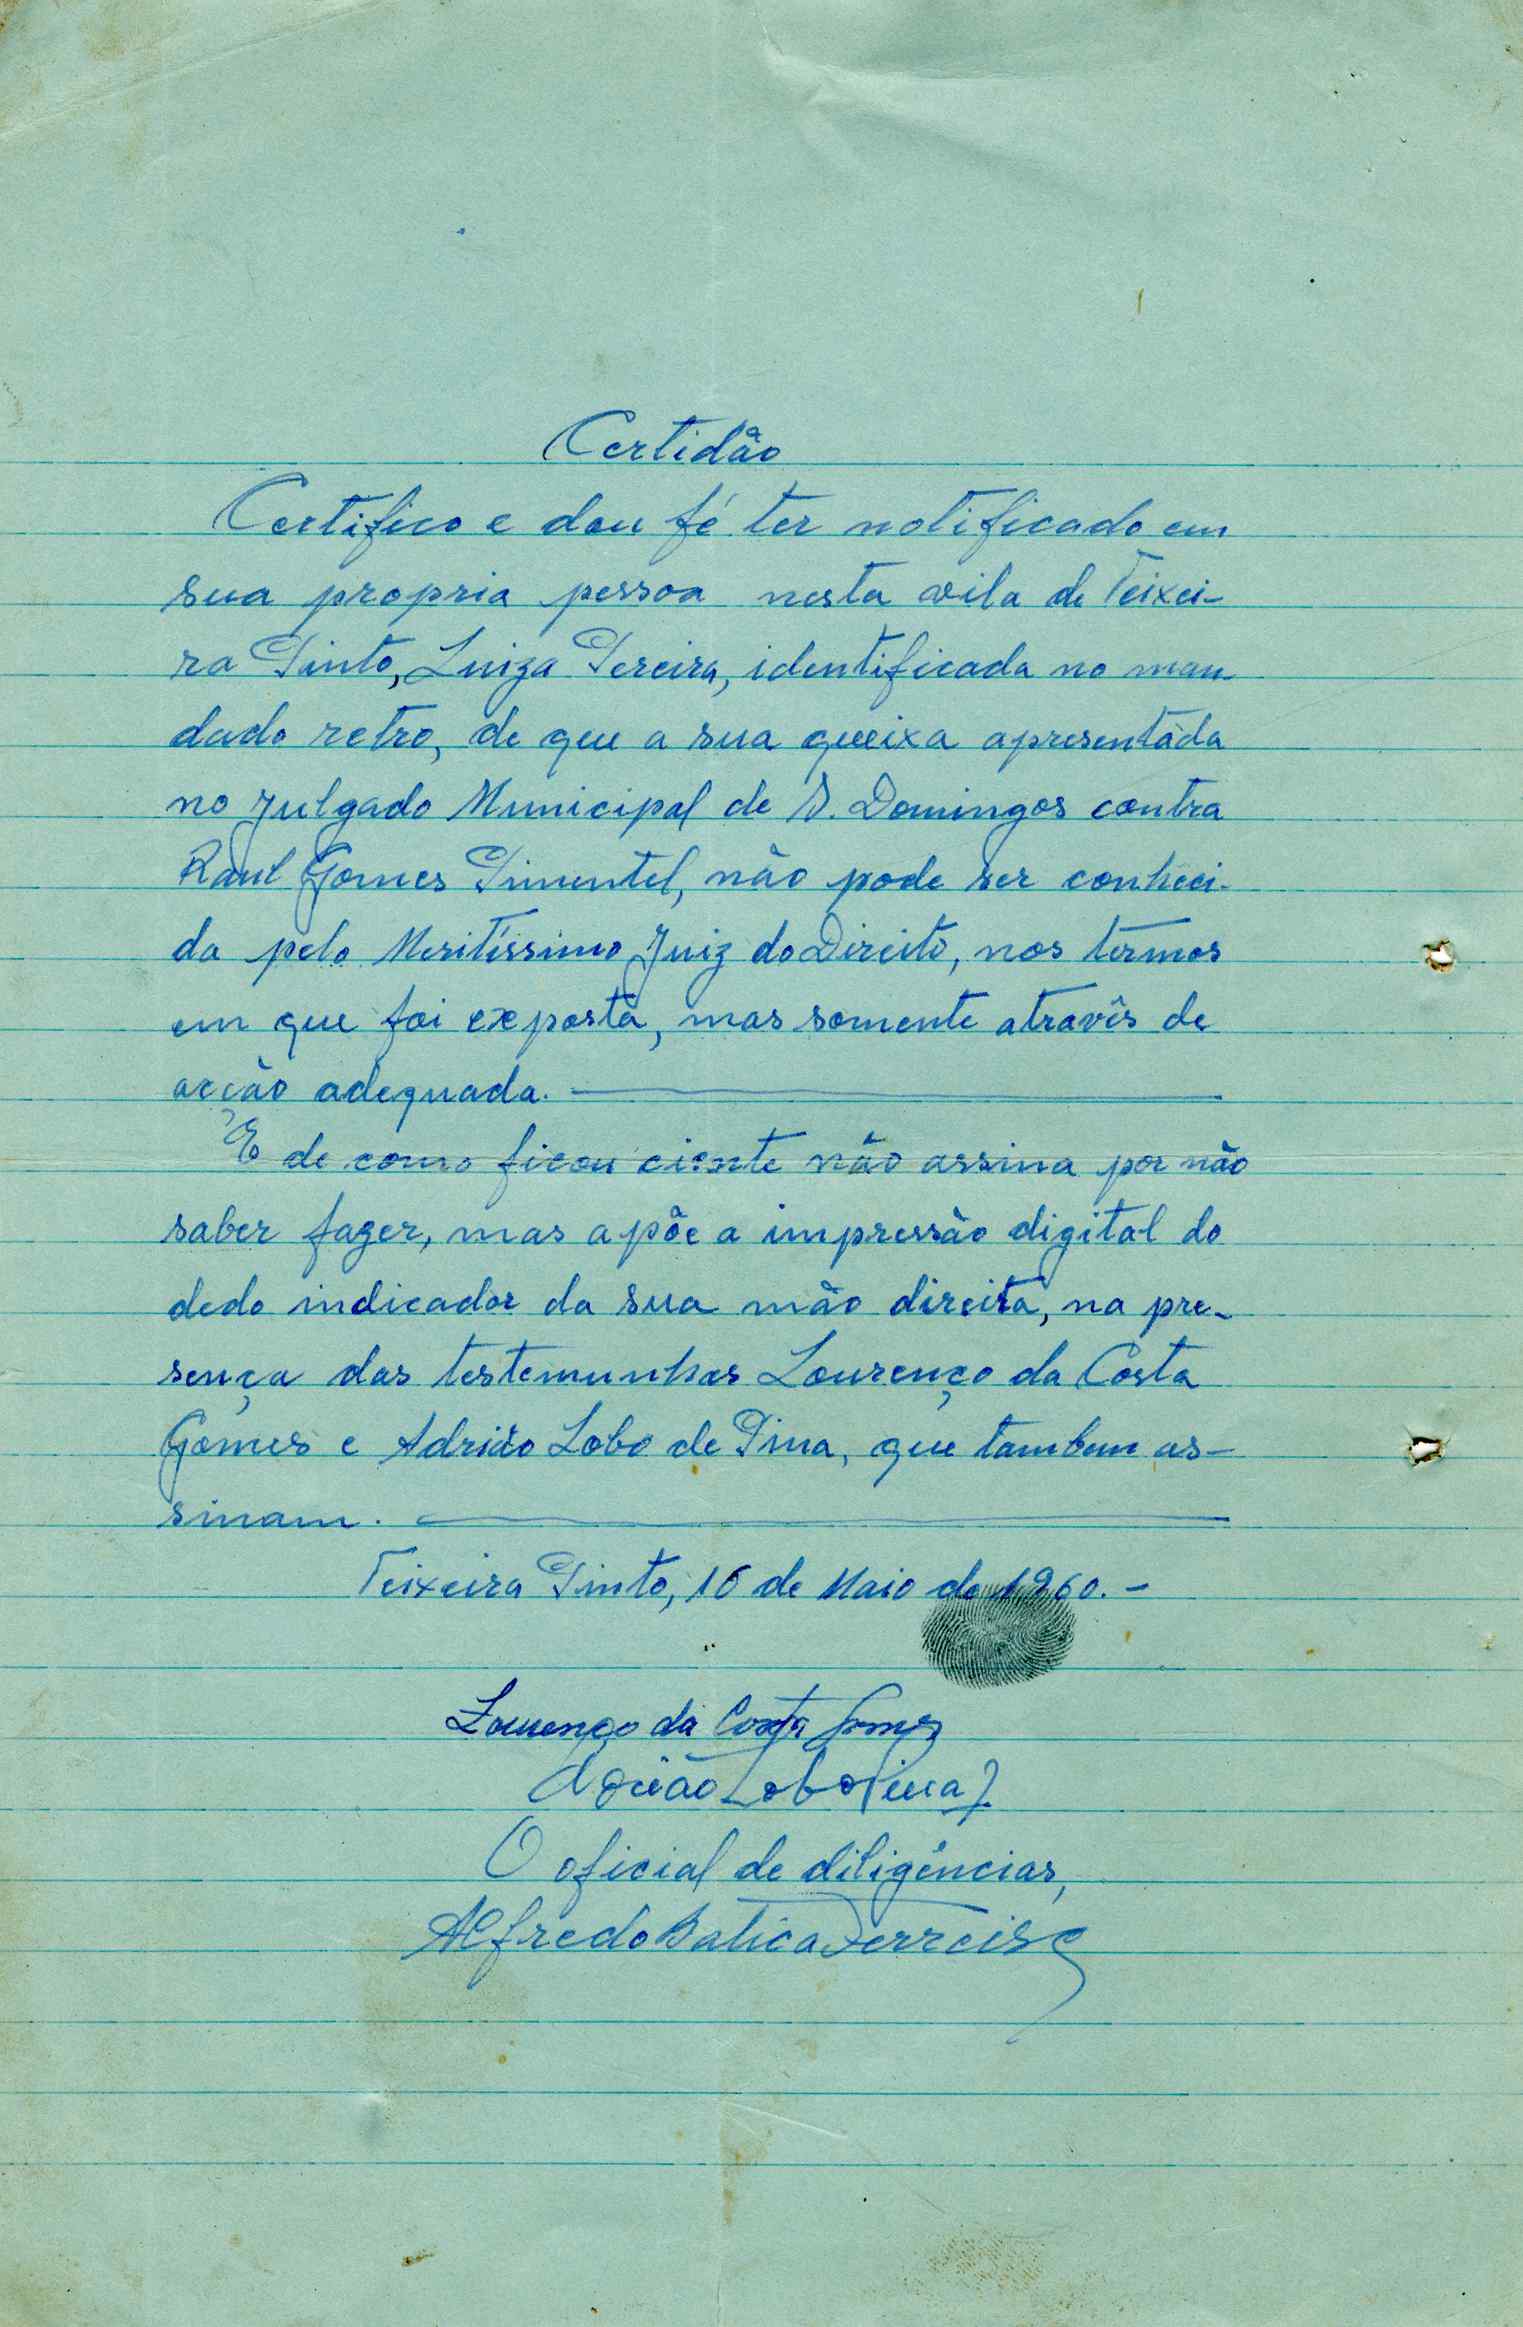 Certidão
Certifico e dou fé ter notificado em
sua propria pessoa nesta vila de Teixei-
ra Pinto, Luiza Pereira, identificada no man-
dado retro, de que a sua queixa apresentada
no Julgado Municipal de S. Domingos contra
Raul Gomes Pimentel, não pode ser conheci-
da pelo Meritíssimo Juiz do Direito, nos termos
em que foi exposta, mas somente atravês de
acção adequada.
E de como ficou ciente não assina por não
saber fazer, mas apõe a impressão digital do
dedo indicador da sua mão direita, na pre-
sença das testemunhas Lourenço da Costa
Gomes e Adrião Lobo de Pina, que tambem as-
sinam.
Teixeira Pinto, 16 de Maio de 1960.-
Lourenço da Costa Gomes
Adrião Lobo Pina
O oficial de diligências,
Alfredo Batica Ferreira